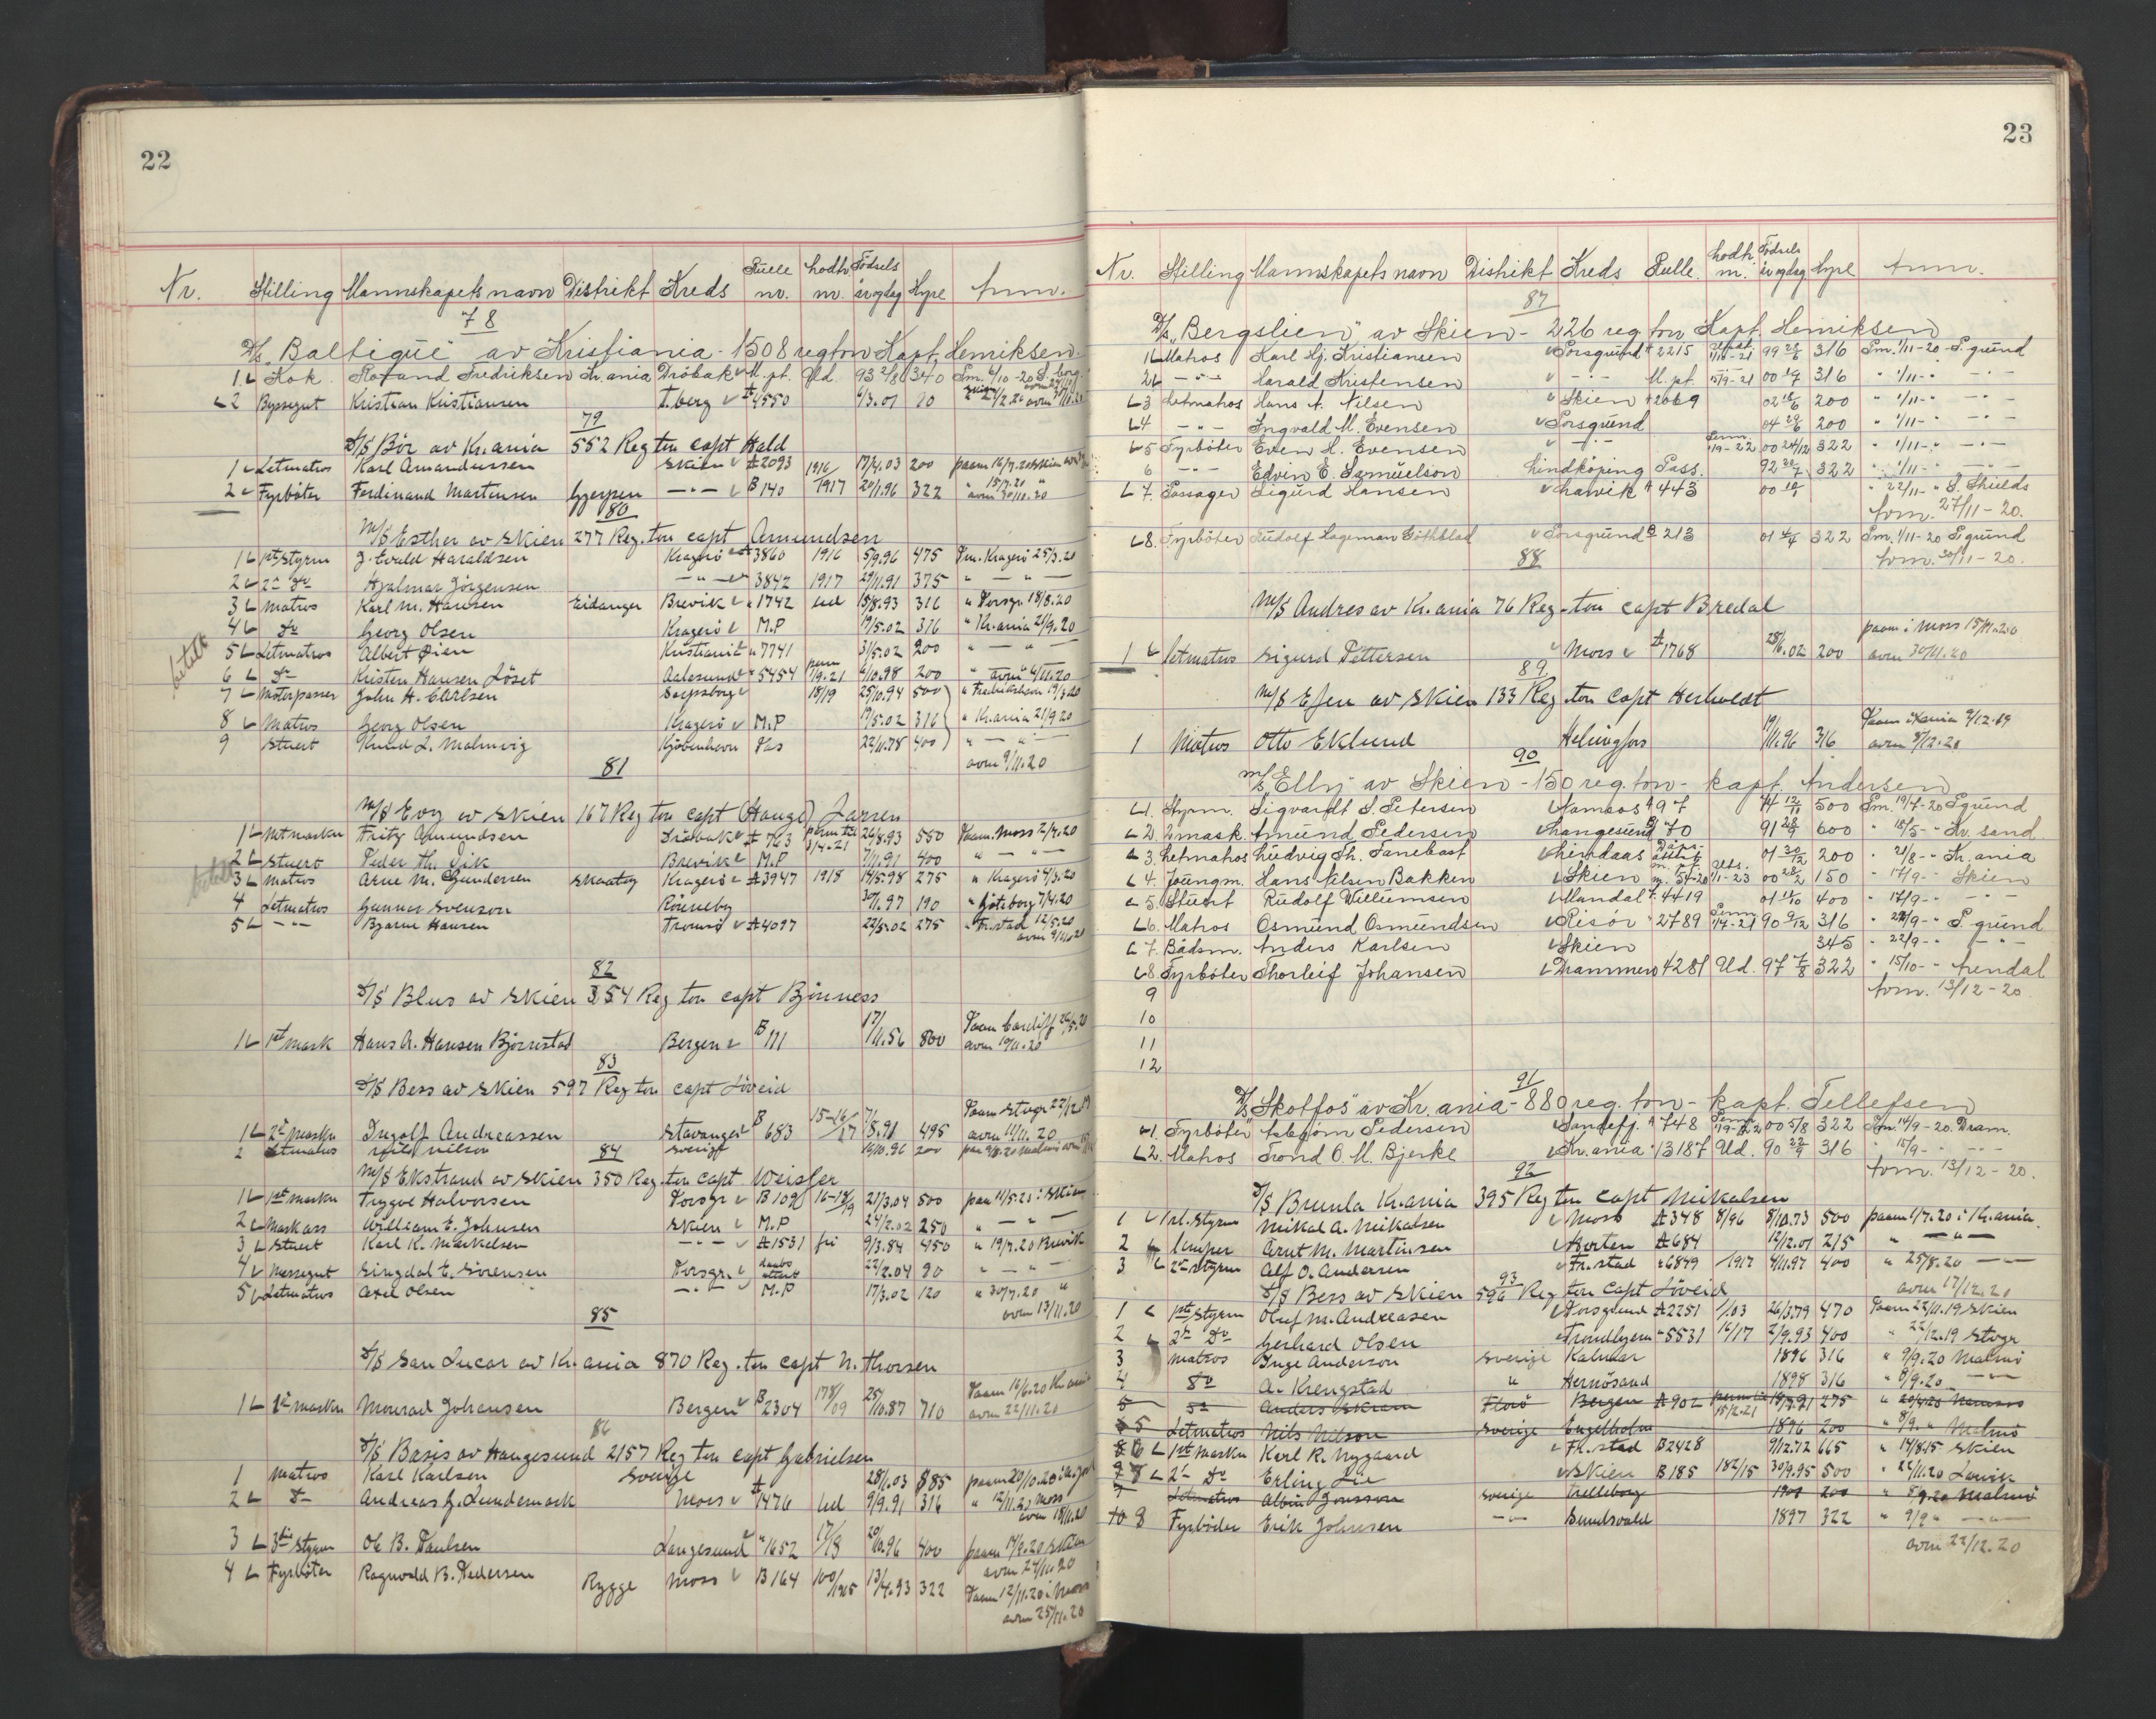 22
Nr. Stilling Mannskapets navn Distrikt Kreds Rulle nr. Lodtr. nr. Födsels år og dag Hyre Anm.
78
D/S "Baltique" av Kristiania - 1508 reg ton Kapt. Henriksen.
1 Kok Fredriksen Kr.ania Dröbak M. pt. Ud. 93 2/8 340 Pm. 6/10-20 S. borg
2 Byssegut Kristian Kristiansen T.berg A 4550 6/3.01 20
79
D/S Bör av Kr.ania 552 Reg ton capt Hald
1 Letmatros Karl Amandussen Skien A 2093 1916 17/4.03 200 paam 16/7.20 Skien
2 Fyrböter Ferdinand Martinsen Gjerpen -"- B 140 1917 20/1.96 322 " 15/7.20 "
avm 30/11.20
80
M/S Esther av Skien 277 Reg. ton capt Amundsen
1 1st Styrm J. Evald Haraldsen Kragerö A 3860 1916 5/9.96 475 Pm. Kragerö 25/3.20
2 2n Do Hjalmar Jörgensen -"- 3842 1917 29/11.91 375 " - " -
3 Matros Karl M. Hansen Eidanger Brevik " 1742 ud 15/8.93 316 " Porsgr. 18/8.20
4 Do Georg Olsen Kragerö M.P 19/5.02 316 " Kr.ania 21/9.20
betalt
5 Letmatros Albert Öien Kristiania " 7741 31/5.02 200 " - " -
6 Do Kristen Hansen Löset Aalesund " 5454 perm 1/9.21 6/10.98 200 " avm 6/11.20
7 Motorpasser John H. Carlsen Sarpsborg 18/19 25/10.94 500 " Fredrikshavn 19/3.20
8 Matros Georg Olsen Kragerö M.P 19/5.02 316 " Kr.ania 21/9 20
9 Stuert Knud L. Malmvig Kjöbenhavn Pas 22/11.78 400 " - " -
avm 9/11.20
81
M/S Evy av Skien 167 Reg ton capt (Hauge) Jansen
1 Mot maskn Fritz Amundsen Dröbak A 763 perm til 3/4-21 26/8.93 550 Paam. Moss 2/7.20
2 Stuert Peder Th. Dik Brevik M.P 7/11.91 400 " - " -
betalt
3 Matros Arne M. Gundersen Skaatöy Kragerö A 3947 1918 14/5.98 275 " Kragerö 4/3.20
4 Letmatros Gunnar Svenson Rönneby 30/11.97 190 " Göteborg 7/4.20
5 -"- Bjarne Hansen Tromsö A 4097 22/5.02 275 " Fr.stad 12/5.20
avm 9/11.20
82
D/S Blus av Skien 354 Reg ton capt Bjönness
1 1st mask Hans A. Hansen Björnstad Bergen B 111 17/11.56 800 Paam Cardiff 26/5.20
avm 10/11.20
83
D/S Bess av Skien 597 Reg ton capt Löveid
1 2n Maskn Ingolf Andreassen Stavanger B 683 15-16/17 7/8.91 495 Paam Stvgr 22/12.19
avm 11/11.20
2 Letmatros Nilson Sverige 16/10.96 200 paa 9/8.20 Malmö
84
M/S Ekstrand av Skien 350 Reg. ton capt Weisser
1 1st maskn Trygve Halvorsen Porsgr B 109 16-18/19 21/3.04 500 paa 11/5.20 i Skien
2 Mask ass William E. Johnsen Skien M.P 24/2.02 250 " - " -
3 Stuert Karl K. Markelsen -"- A 1531 fri 9/3.84 450 " 19/7.20 Brevik
4 Messegut Singdal E. Sörensen Porsgr. daabs attest 22/2.04 90 " - " -
5 Letmatros Axel Olsen -"- M.P 17/3.02 120 " 30/7.20 "
avm 13/11.20
85
D/S San Lucar av Kr.ania 870 Reg. ton capt N. Thorsen
1 2n maskn Monrad Johansen Bergen B 2304 178/09 25/10.87 710 Paam 16/6.20 Kr.ania
avm 22/11.20
86
D/S Basis av Haugesund 2157 Reg ton capt Gabrielsen
1 Matros Karl Karlsen Sverige 28/1.03 385 paam 20/10.20
2 Do Andreas G. Lundemark Moss A 1476 ud 9/9.91 316 " 12/11.20 Moss
avm 18/11.20
3 3die Styrm Ole B. Paulsen Langesund " 1652 17/18 20/10.96 400 paam 17/9.20 Skien
avm 24/11.20
4 Fyrböter Ragnvald B. Pedersen Rygge Moss B 164 100/1915 13/4.93 322 Paam 12/11.20 i Moss
avm 25/11.20
23
Nr. Stilling Mannskapets navn Distrikt Kreds Rulle Lodtr. nr. Födsels år og dag Hyre Anm.
87
D/S "Bergslien" av Skien - 226 reg ton Kapt. Henriksen
1 Matros Karl Hj. Kristiansen Porsgrund A 2215 1/11-21 99 28/6 316 Pm. 1/11-20 P. grund
2 -"- Harald Kristensen -"- M. pt. 15/9-21 00 19/7 316 " 1/11-" -"-
3 Letmatros Hans A. Nilsen Skien A 2069 02 16/6 200 " 1/11-" -"-
4 -"- Ingvald M. Evensen Porsgrund 04 29/6 200 " 1/11-" -"-
5 Fyrböter Even H. Evensen -"- Perm. 1/9-22 00 24/12 322 " 1/11-" -"-
6 -"- Edvin E. Samuelson Lindköping Pass. 92 322 " 1/11-" -"-
7. Passager Sigurd Hansen Larvik A 443 00 " 22/11-" S. Shields
Avm. 27/11-20.
8. Fyrböter Rudolf Hageman Göthblad Porsgrund B 213 01 322 Pm. 1/11-20 P.grund
Avm. 30/11-20.
88
M/S Andres av Kr.ania 76 Reg-ton capt Bredal
1 Letmatros Sigurd Pettersen Moss A 1768 28/6.02 200 paam i Moss 15/11.20
avm 30/11.20
89
M/S Efjen av Skien 133 Reg ton Capt Herholdt
1 Matros Otto Eklund Helsingfors 19/11.96 316 Paam i Kr.ania 9/12.19
avm 8/12.20
90
M/S "Elly" av Skien - 150 reg. ton - kapt. Andersen
1. Styrm. Sigvardt S. Petersen Namsos A 97 44 12/11 500 Pm. 19/7-20 P.grund
2. 2. mask. Amund Pedersen Langesund B 70 91 600 " 18/5-" Kr. sand.
3. Letmatros Ludvig Th. Tanebast Lindaas Daabsattest 01 30/12 200 " 21/8-" Kr. ania
4. Joungm. Hans Nilsen Bakken Skien m. pt. 54-20 Uts. 1/11-23 00 28/2 150 " 17/9-" Skien
5 Stuert Rudolf Willumsen Mandal A 4419 01 400 " 17/9-" -"-
6. Matros Osmund Osmundsen Risör " 2789 Perm. 1/4-21 90 9/12 316 " 22/9-" P. grund
7. Bådsm. Anders Karlsen Skien 345 " 22/9-" -"-
8 Fyrböter Thorleif Johansen Drammen 4281 Ud. 97 7/8 322 " 15/10-" Arendal
9
Avm. 13/12-20.
10
11
12
91
D/S "Skotfos" av Kr. ania - 880 reg. ton - kapt. Tellefsen
1. Fyrböter Asbjörn Pedersen Sandefj. A 748 00 5/8 322 Pm. 14/9-20. Dram.
2. Matros Trond O. M. Bjerke Kr. ania " 13187 Ud. 90 22/9 316 " 15/9-" -"-
Avm. 13/12-20.
92
D/S Brunla Kr.ania 395 Reg ton capt Mikalsen
1 1ste Styrm Mikal A. Mikalsen Moss A 348 8/96 8/10.73 500 paam 1/7.20 i Kr.ania
2 Lemper Arnt M. Martinsen Horten A 684 12/12.01 215 " -"-
3 2n Styrm Alf O. Andersen Fr. stad " 6849 1917 4/11.97 400 " 25/8.20 -"-
avm 17/12.20
93
D/S Bess av Skien 596 Reg ton Capt Löveid
1 1st Styrm Oluf M. Andreasen Porsgrund A 2251 1/03 26/3.79 470 Paam 22/11.19 Skien
2 2n Do Gerhard Olsen Trondhjem " 5531 16/17 2/9.93 400 " 22/12.19 Stvgr
3 Matros Inge Anderson Sverige Kalmar 1896 316 " 9/9.20 Malmö
4 Do A. Krengstad " Hernösand 1898 316 " 8/9.20 -"-
5 Do Anders Ekram Florö Bergen A 902 perm til 15/2-21 18/9.91 275 " 20/4.20 Namsos
6 5 Letmatros Nils Nilson Sverige Engelholm 1896 200 " 8/9. " Malmö
8 6 1st maskn Karl R. Nygaard Fr. stad B 2428 9/12.72 665 " 14/8.15 Skien
9 8 2n Do Erling Lie Skien B 185 182/15 30/9.95 500 " 22/11.20 Larvik
7 Letmatros Albin Jonsson Sverige Trelleborg 1901 200 " 8/9.20 Malmö
10 8 Fyrböder Erik Johnsen -"- Sundsvald 1897 322 " 9/9 " -"-
avm 22/12.20